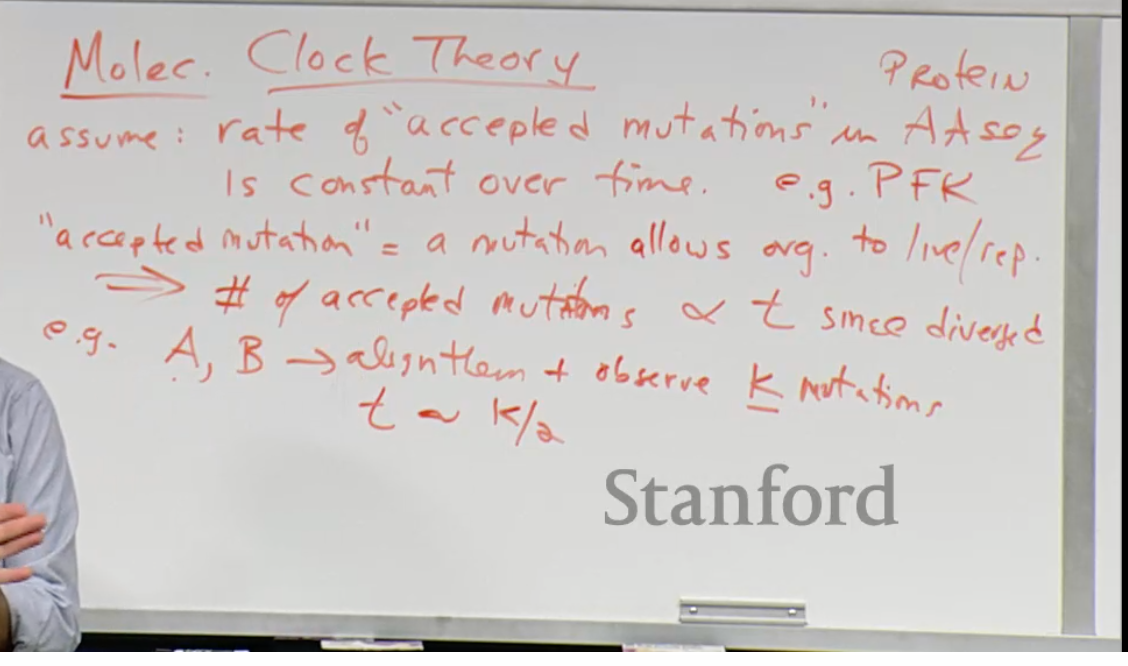 Molec. Clock Theory
Protein
assume: rate of "accepted mutations" in AA seq
is constant over time. e.g. PFK
"accepted mutation" = a mutation allows org. to live/rep.
⇒ # of accepted mutations ∝ t since diverged
e.g. A, B → align them + observe K mutations
t ~ K/2
Stanford